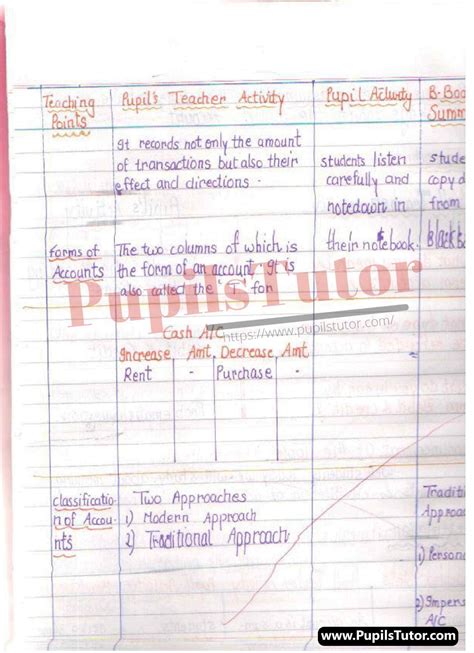 Teaching Points
Pupil's Teacher Activity
Pupil Activity
B-Boa
Summ
It records not only the amount
of transactions but also their
effect and directions.
students listen
carefully and
notedown in
their notebook.
stude
copy d
from
Blackb
forms of
Accounts
The two columns of which is
the form of an account. It is
also called the 'T' for
PupilsTutor
https://www.pupilstutor.com/
Cash A/C
Increase Amt. Decrease Amt
Rent - Purchase -
classificatio-
n of Accou-
nts
Two Approaches
1) Modern Approach
2) Traditional Approach
Traditi
Approac
1) Persona
2) Impers
A/C
www.PupilsTutor.com